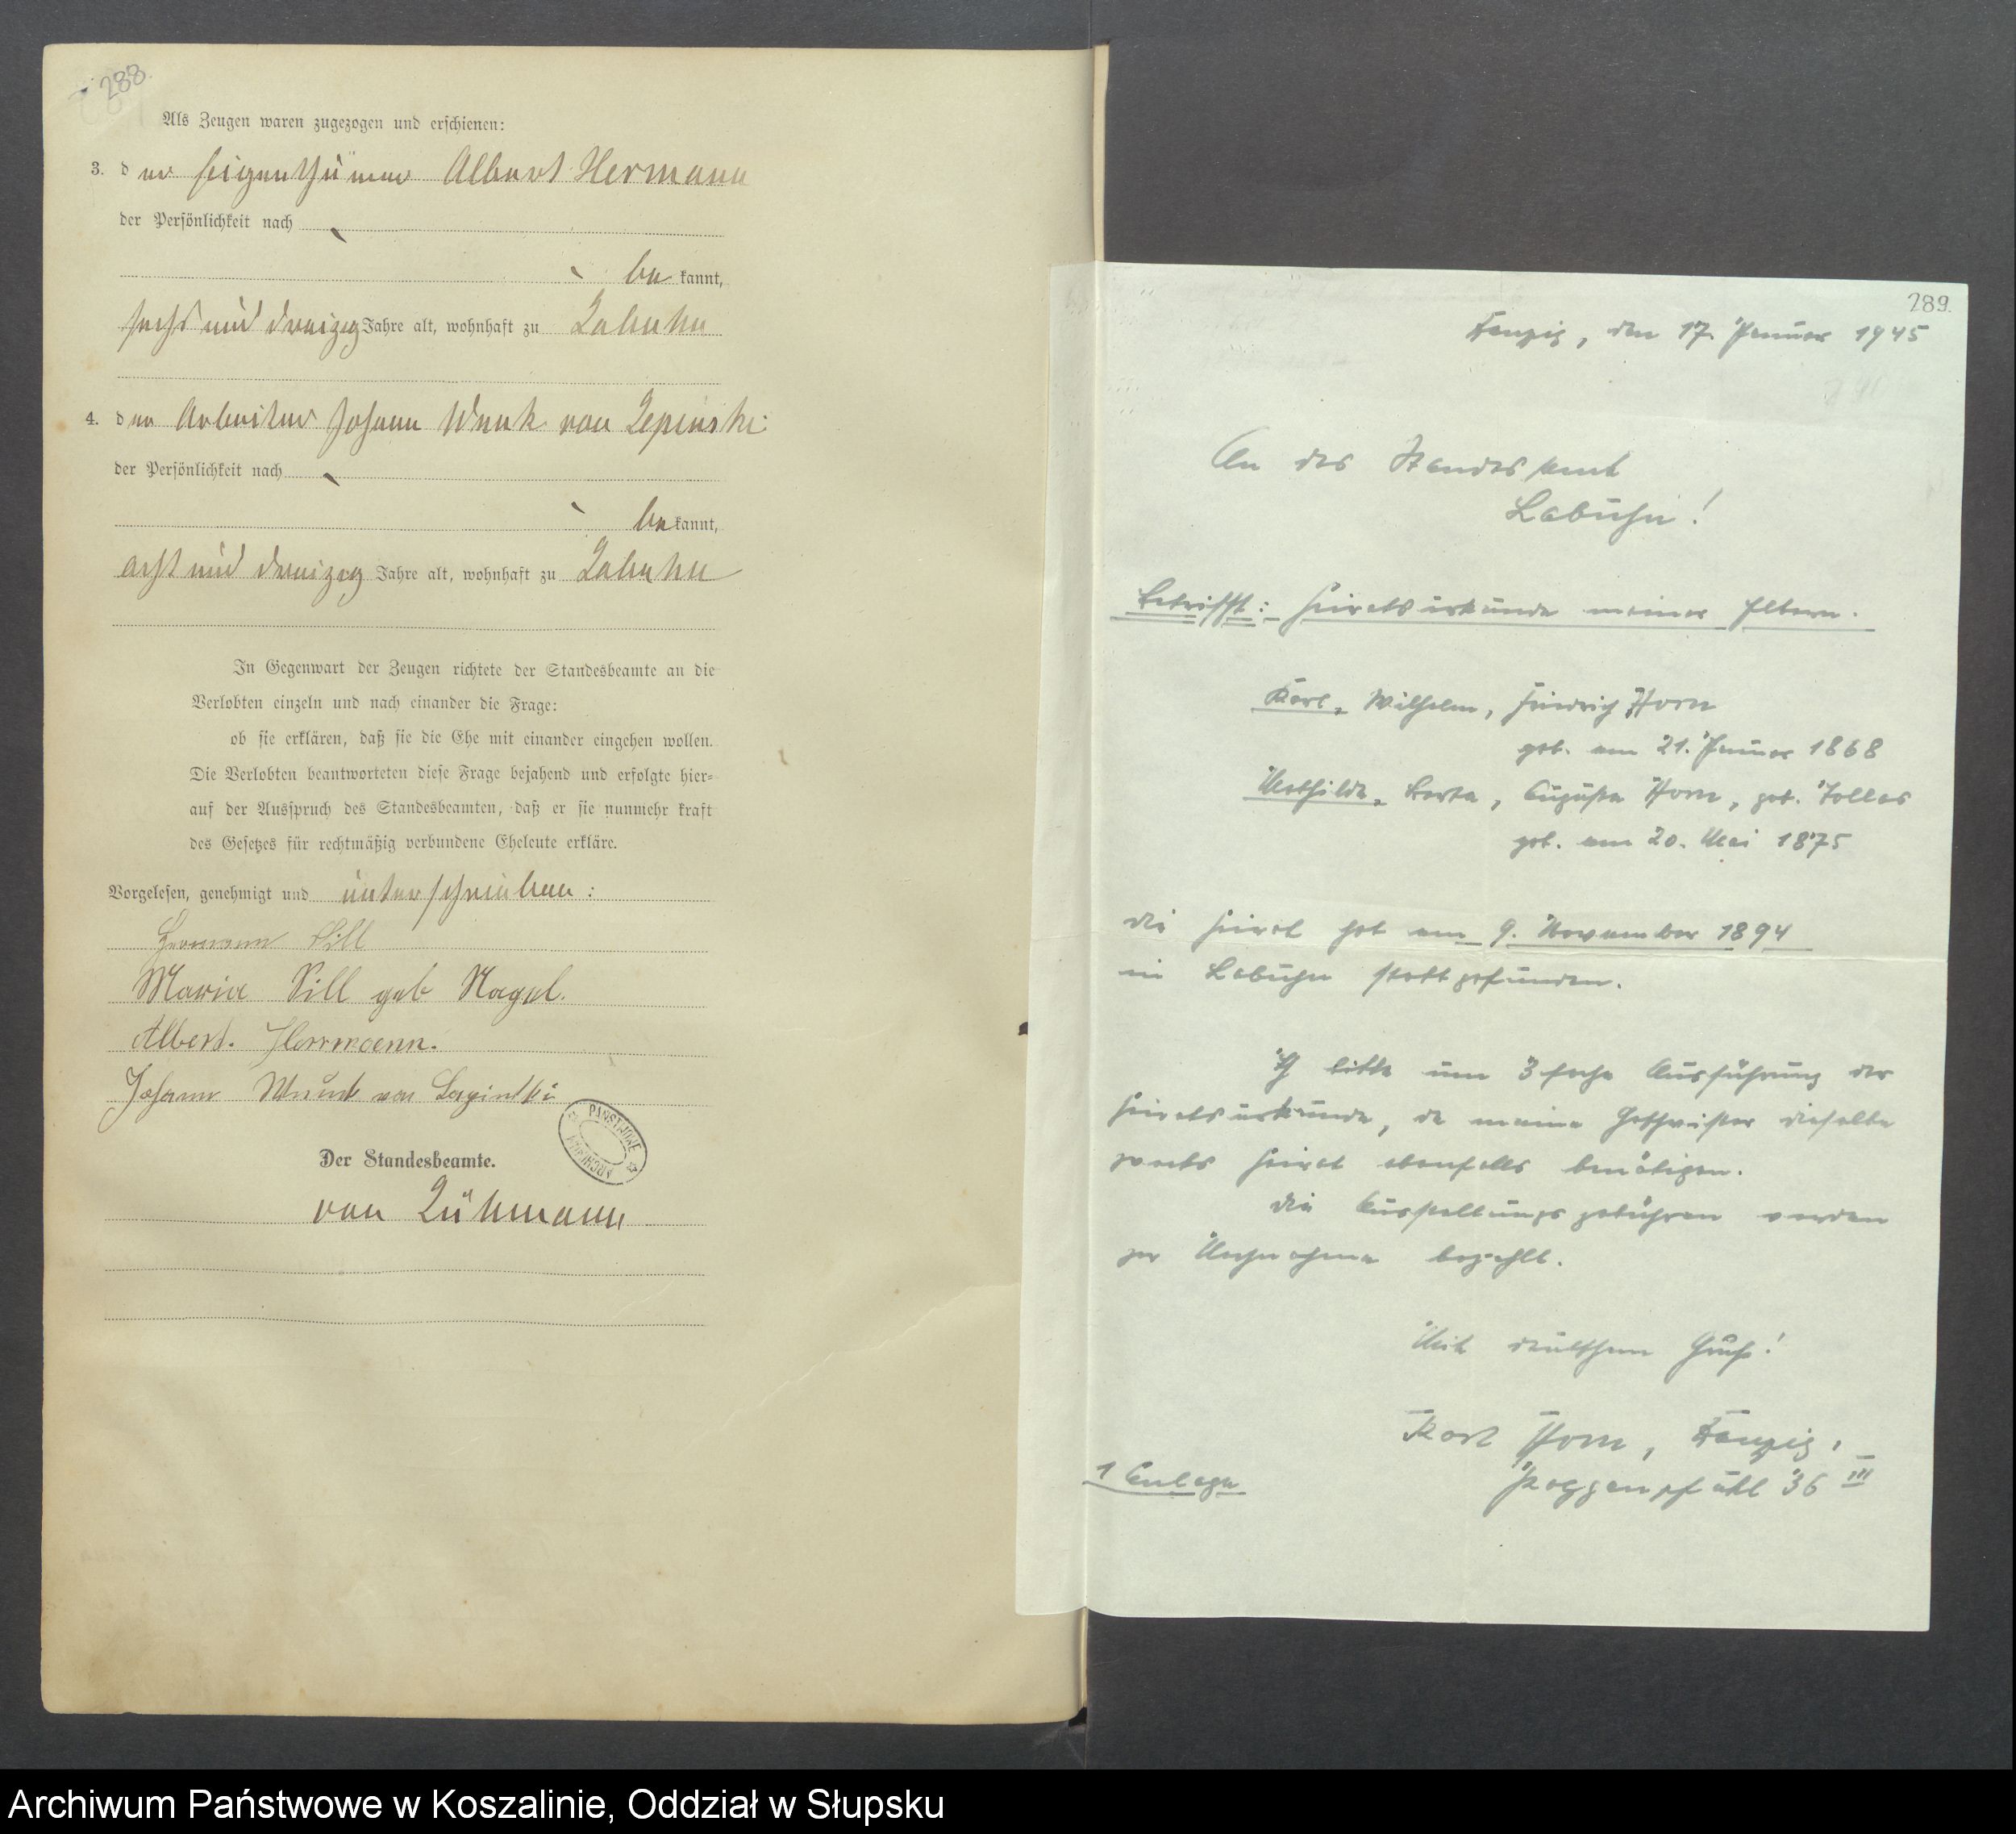 288.
Als Zeugen waren zugezogen und erschienen:
3. der Eigenthümer Albert Hermann
der Persönlichkeit nach
be kannt,
sechs und dreizig Jahre alt, wohnhaft zu Labuhn
4. der Arbeiter Johann Wnuk von Lepinski
der Persönlichkeit nach
be kannt,
acht und dreizig Jahre alt, wohnhaft zu Labuhn
In Gegenwart der Zeugen richtete der Standesbeamte an die
Verlobten einzeln und nach einander die Frage:
ob sie erklären, daß sie die Ehe mit einander eingehen wollen.
Die Verlobten beantworteten diese Frage bejahend und erfolgte hier=
auf der Ausspruch des Standesbeamten, daß er sie nunmehr kraft
des Gesetzes für rechtmäßig verbundene Eheleute erkläre.
Vorgelesen, genehmigt und unterschrieben:
Hermann Sill
Maria Sill geb Nagel.
Albert. Herrmann.
Johann Wnuk von
PAŃSTWOWE ARCHIWUM
Der Standesbeamte.
von Lühmann
289.
Danzig, den 17. Januar 1945
An das Standesamt
Labuhn!
Betrifft: Heiratsurkunde meiner Eltern.
Karl, Wilhelm, Heinrich Horn
geb. am 21. Januar 1868
Mathilde, Berta, Auguste Horn, geb.
geb. am 20. Mai 1875
Die Heirat hat am 9. November 1894
in Labuhn stattgefunden.
Ich bitte um 3 fache Ausführung der
Heiratsurkunde, da meine Geschwister dieselbe
zwecks Heirat ebenfalls benötigen.
Die Ausstellungsgebühren werden
per Nachnahme bezahlt.
Mit deutschem Gruß!
Horn, Danzig,
1 Anlage
Poggenpfuhl 36 III
Archiwum Państwowe w Koszalinie, Oddział w Słupsku